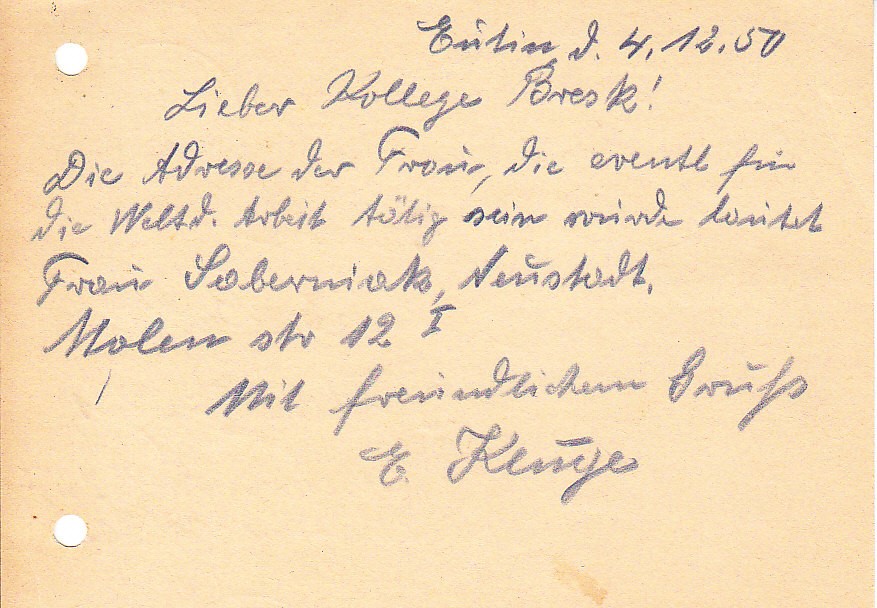 Eutin, d. 4.12.50
Lieber Kollege Bresk!
Die Adresse der Frau, die eventl für
die Weltd. Arbeit tätig sein würde lautet
Frau Saberniak, Neustadt.
Molen str 12 I
Mit freundlichem Gruß
E.